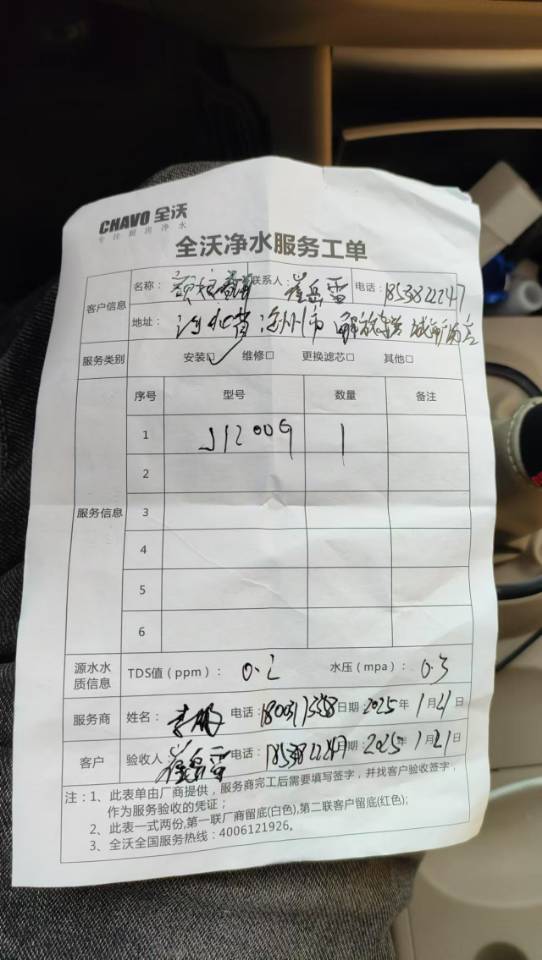 CHAVO 全沃
专注厨房净水
全沃净水服务工单
客户信息 名称： 联系人： 崔岳雷 电话：
地址： 河北省沧州市解放路
服务类别 安装□ 维修□ 更换滤芯□ 其他□
序号 型号 数量 备注
服务信息
1 J1200G 1
2
3
4
5
6
源水水质信息 TDS值（ppm）： 0.2 水压（mpa）： 0.3
服务商 姓名： 李 电话： 日期： 2025年1月21日
客户 验收人： 崔岳雷 电话： 日期： 2025年1月21日
注：1、此表单由厂商提供，服务商完工后需要填写签字，并找客户验收签字，
作为服务验收的凭证；
2、此表一式两份,第一联厂商留底(白色),第二联客户留底(红色);
3、全沃全国服务热线：4006121926。